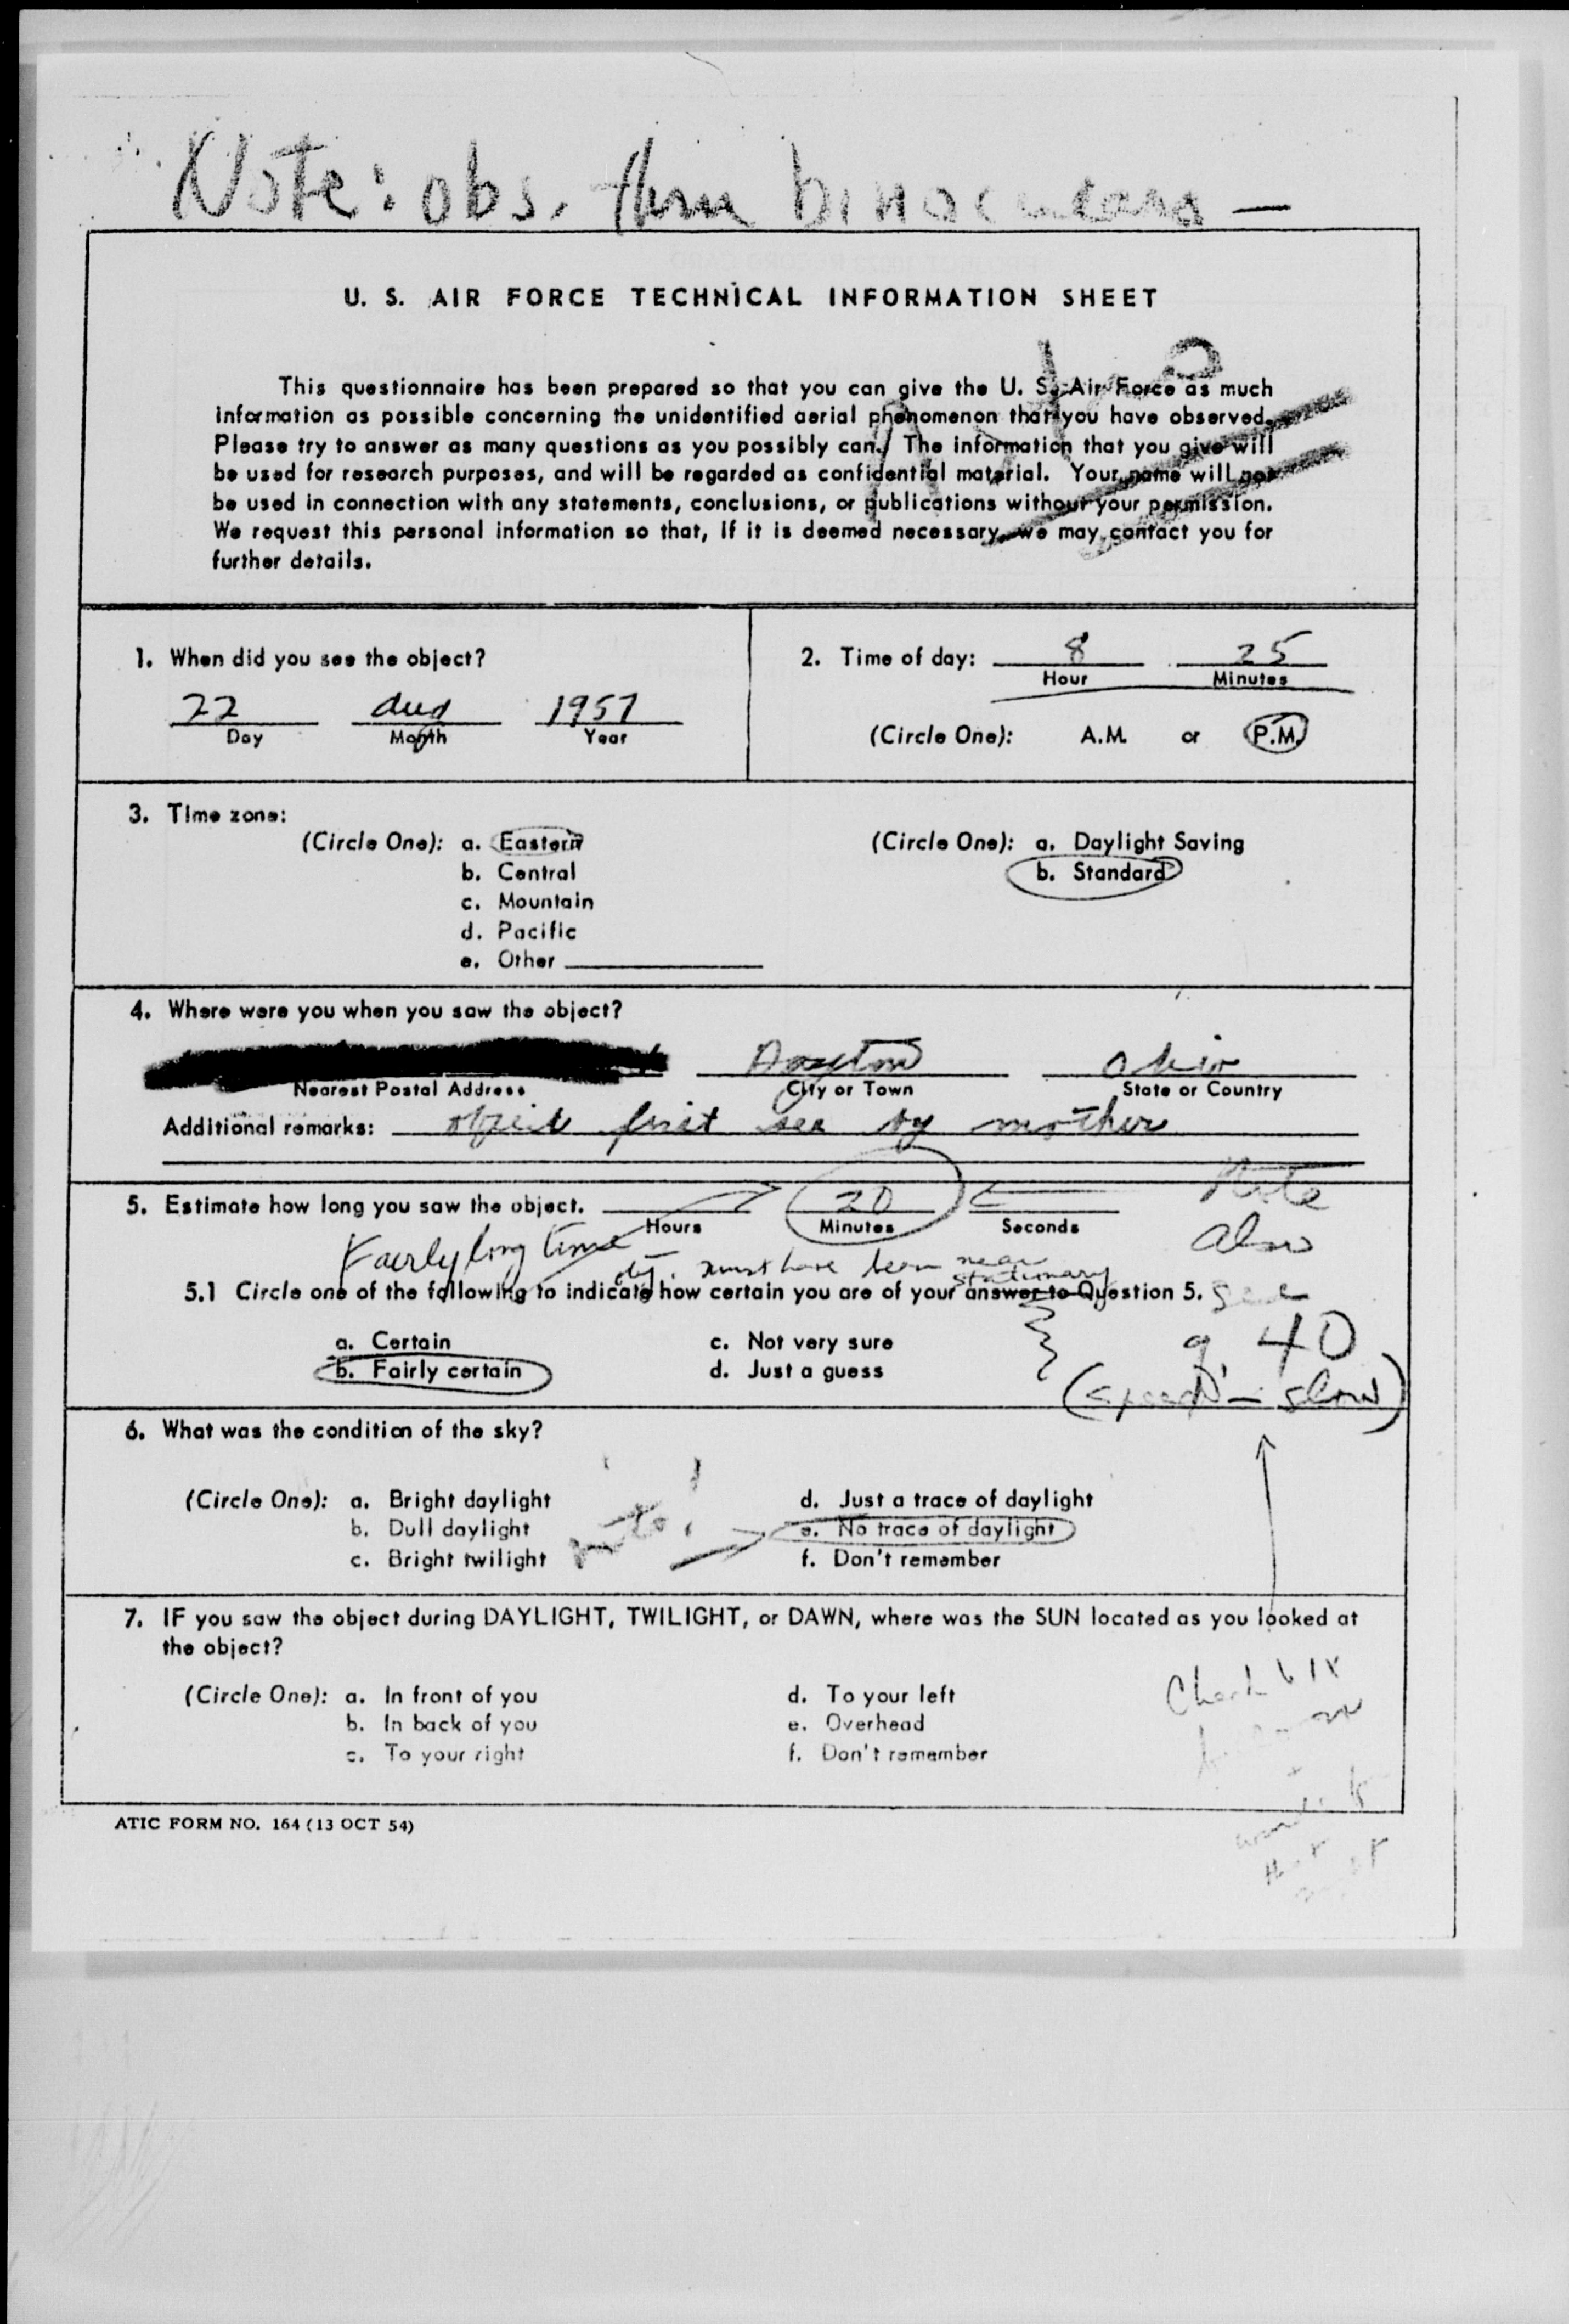 Note: obs. thru binoculars —
U. S. AIR FORCE TECHNICAL INFORMATION SHEET
This questionnaire has been prepared so that you can give the U. S. Air Force as much
information as possible concerning the unidentified aerial phenomenon that you have observed.
Please try to answer as many questions as you possibly can. The information that you give will
be used for research purposes, and will be regarded as confidential material. Your name will not
be used in connection with any statements, conclusions, or publications without your permission.
We request this personal information so that, if it is deemed necessary, we may contact you for
further details.
1. When did you see the object?
22 Aug 1957
Day Month Year
2. Time of day: 8 25
Hour Minutes
(Circle One): A.M. or P.M.
3. Time zone:
(Circle One): a. Eastern
b. Central
c. Mountain
d. Pacific
e. Other
(Circle One): a. Daylight Saving
b. Standard
4. Where were you when you saw the object?
Dayton Ohio
Nearest Postal Address City or Town State or Country
Additional remarks: object first see by mother
5. Estimate how long you saw the object. 20
Hours Minutes Seconds
Note
also
see
q. 40
(speed - slow)
Fairly long time
obj. must have been near
stationary
5.1 Circle one of the following to indicate how certain you are of your answer to Question 5.
a. Certain
b. Fairly certain
c. Not very sure
d. Just a guess
6. What was the condition of the sky?
(Circle One): a. Bright daylight
b. Dull daylight
c. Bright twilight
note!
d. Just a trace of daylight
e. No trace of daylight
f. Don't remember
7. IF you saw the object during DAYLIGHT, TWILIGHT, or DAWN, where was the SUN located as you looked at
the object?
(Circle One): a. In front of you
b. In back of you
c. To your right
d. To your left
e. Overhead
f. Don't remember
Check
ATIC FORM NO. 164 (13 OCT 54)